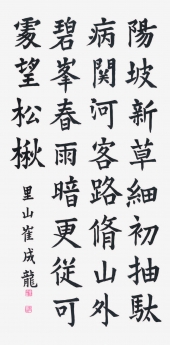 陽坡新草細初抽駄
病關河客路脩山外
碧峯春雨暗更従可
處望松楸
里山崔成龍